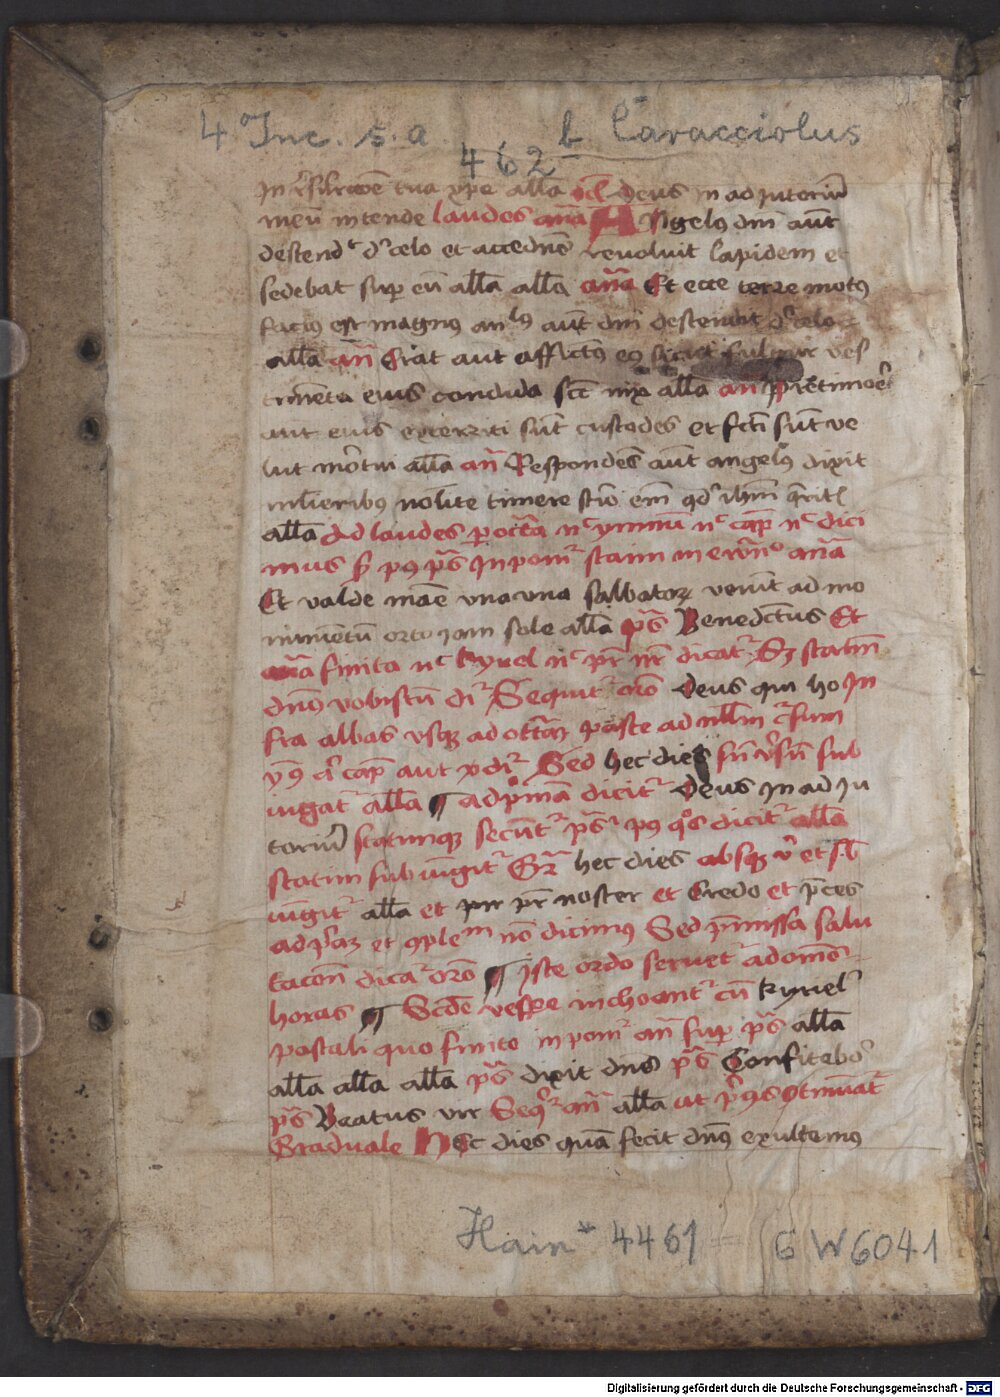 4° Inc. s. a. 462 b Caracciolus
In tua xpe alla Deus in adiutoriū
meū intende laudes an̄a Angelus dnī aūt
descend de celo et accedens revoluit lapidem et
sedebat sup eū alla alla an̄a Et ecce terre motus
factus est magnus angls aūt dnī descendit de celo
alla an̄ Erat aut eius sicut fulgur ves
timēta eius candida sic nix alla an̄ Pre timore
aut eius exterriti sūt custodes et fcti sūt ve
lut mortui alla an̄ Respondens aūt angelus dixit
mulieribus nolite timere scio em̄ qd ihm̄ queritis
alla Ad laudes p octavā nec ymnum nec cap nec dici
mus ps Inponit statim an̄a
Et valde mane una sabbatorum veniūt ad mo
numentū orto iam sole alla ps Benedictus Et
an̄a finita nec kyriel nec pr nr dicat Sz statim
dn̄s vobiscū dr Sequit oro Deus qui ho In
fra albas usque ad octavam pasce ad
cap aut Sed hec dies sub
iūgat alla ¶ ad primā dicit Deus in ad iu
toriū statimque secunt ps quos dicit alla
statim sub iūgit Gr hec dies absque et
iūgit alla et pr noster et Credo et pces
ad et qple nō dicimus Sed pmissa salu
tacōn dicat oro ¶ Iste ordo servet ad omēs
horas ¶ Scde vespe inchoant cū kyriel
pascali quo finito inponit an̄ sup ps alla
alla alla alla ps dixit dns ps Confitebor
ps Beatus vir Seqr an̄ alla ut
Graduale Hec dies quā fecit dn̄s exultemus
Hain * 4461 = GW 6041
Digitalisierung gefördert durch die Deutsche Forschungsgemeinschaft - DFG